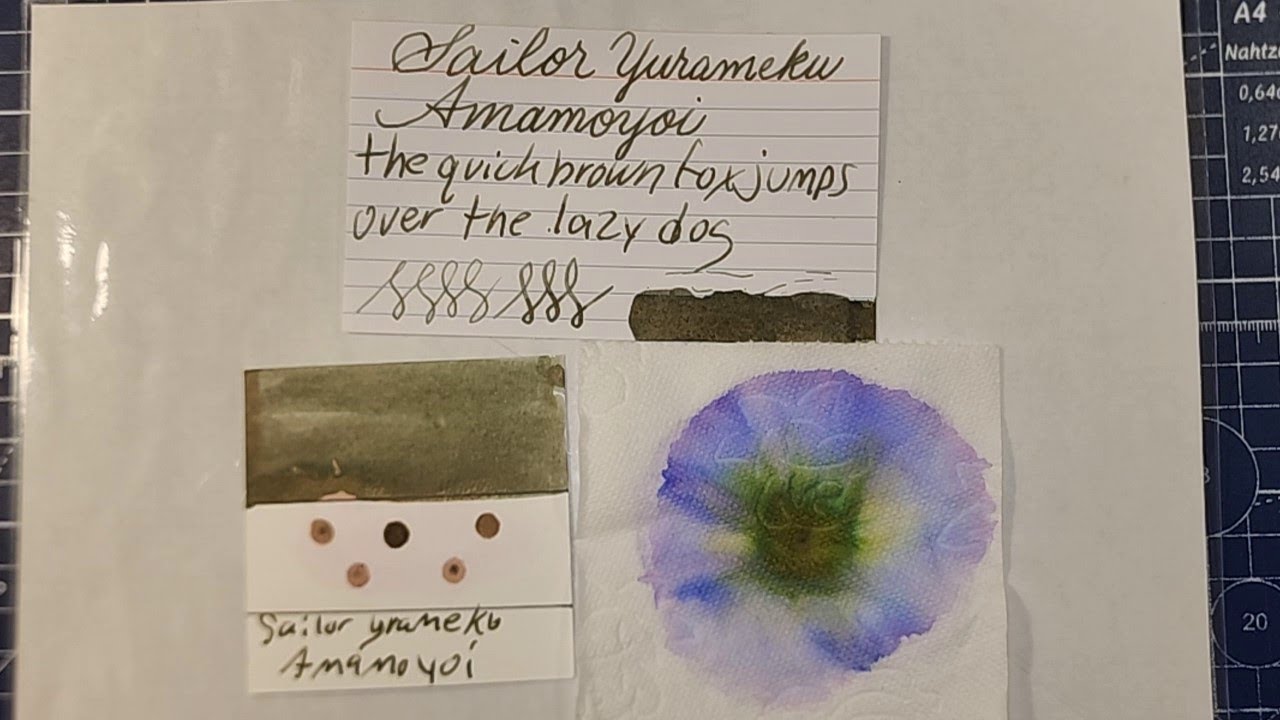 Sailor Yurameku
Amamoyoi
the quick brown fox jumps
over the lazy dog
Sailor yrameku
Amamoyoi
A4
0,64
1,27
2,54
20